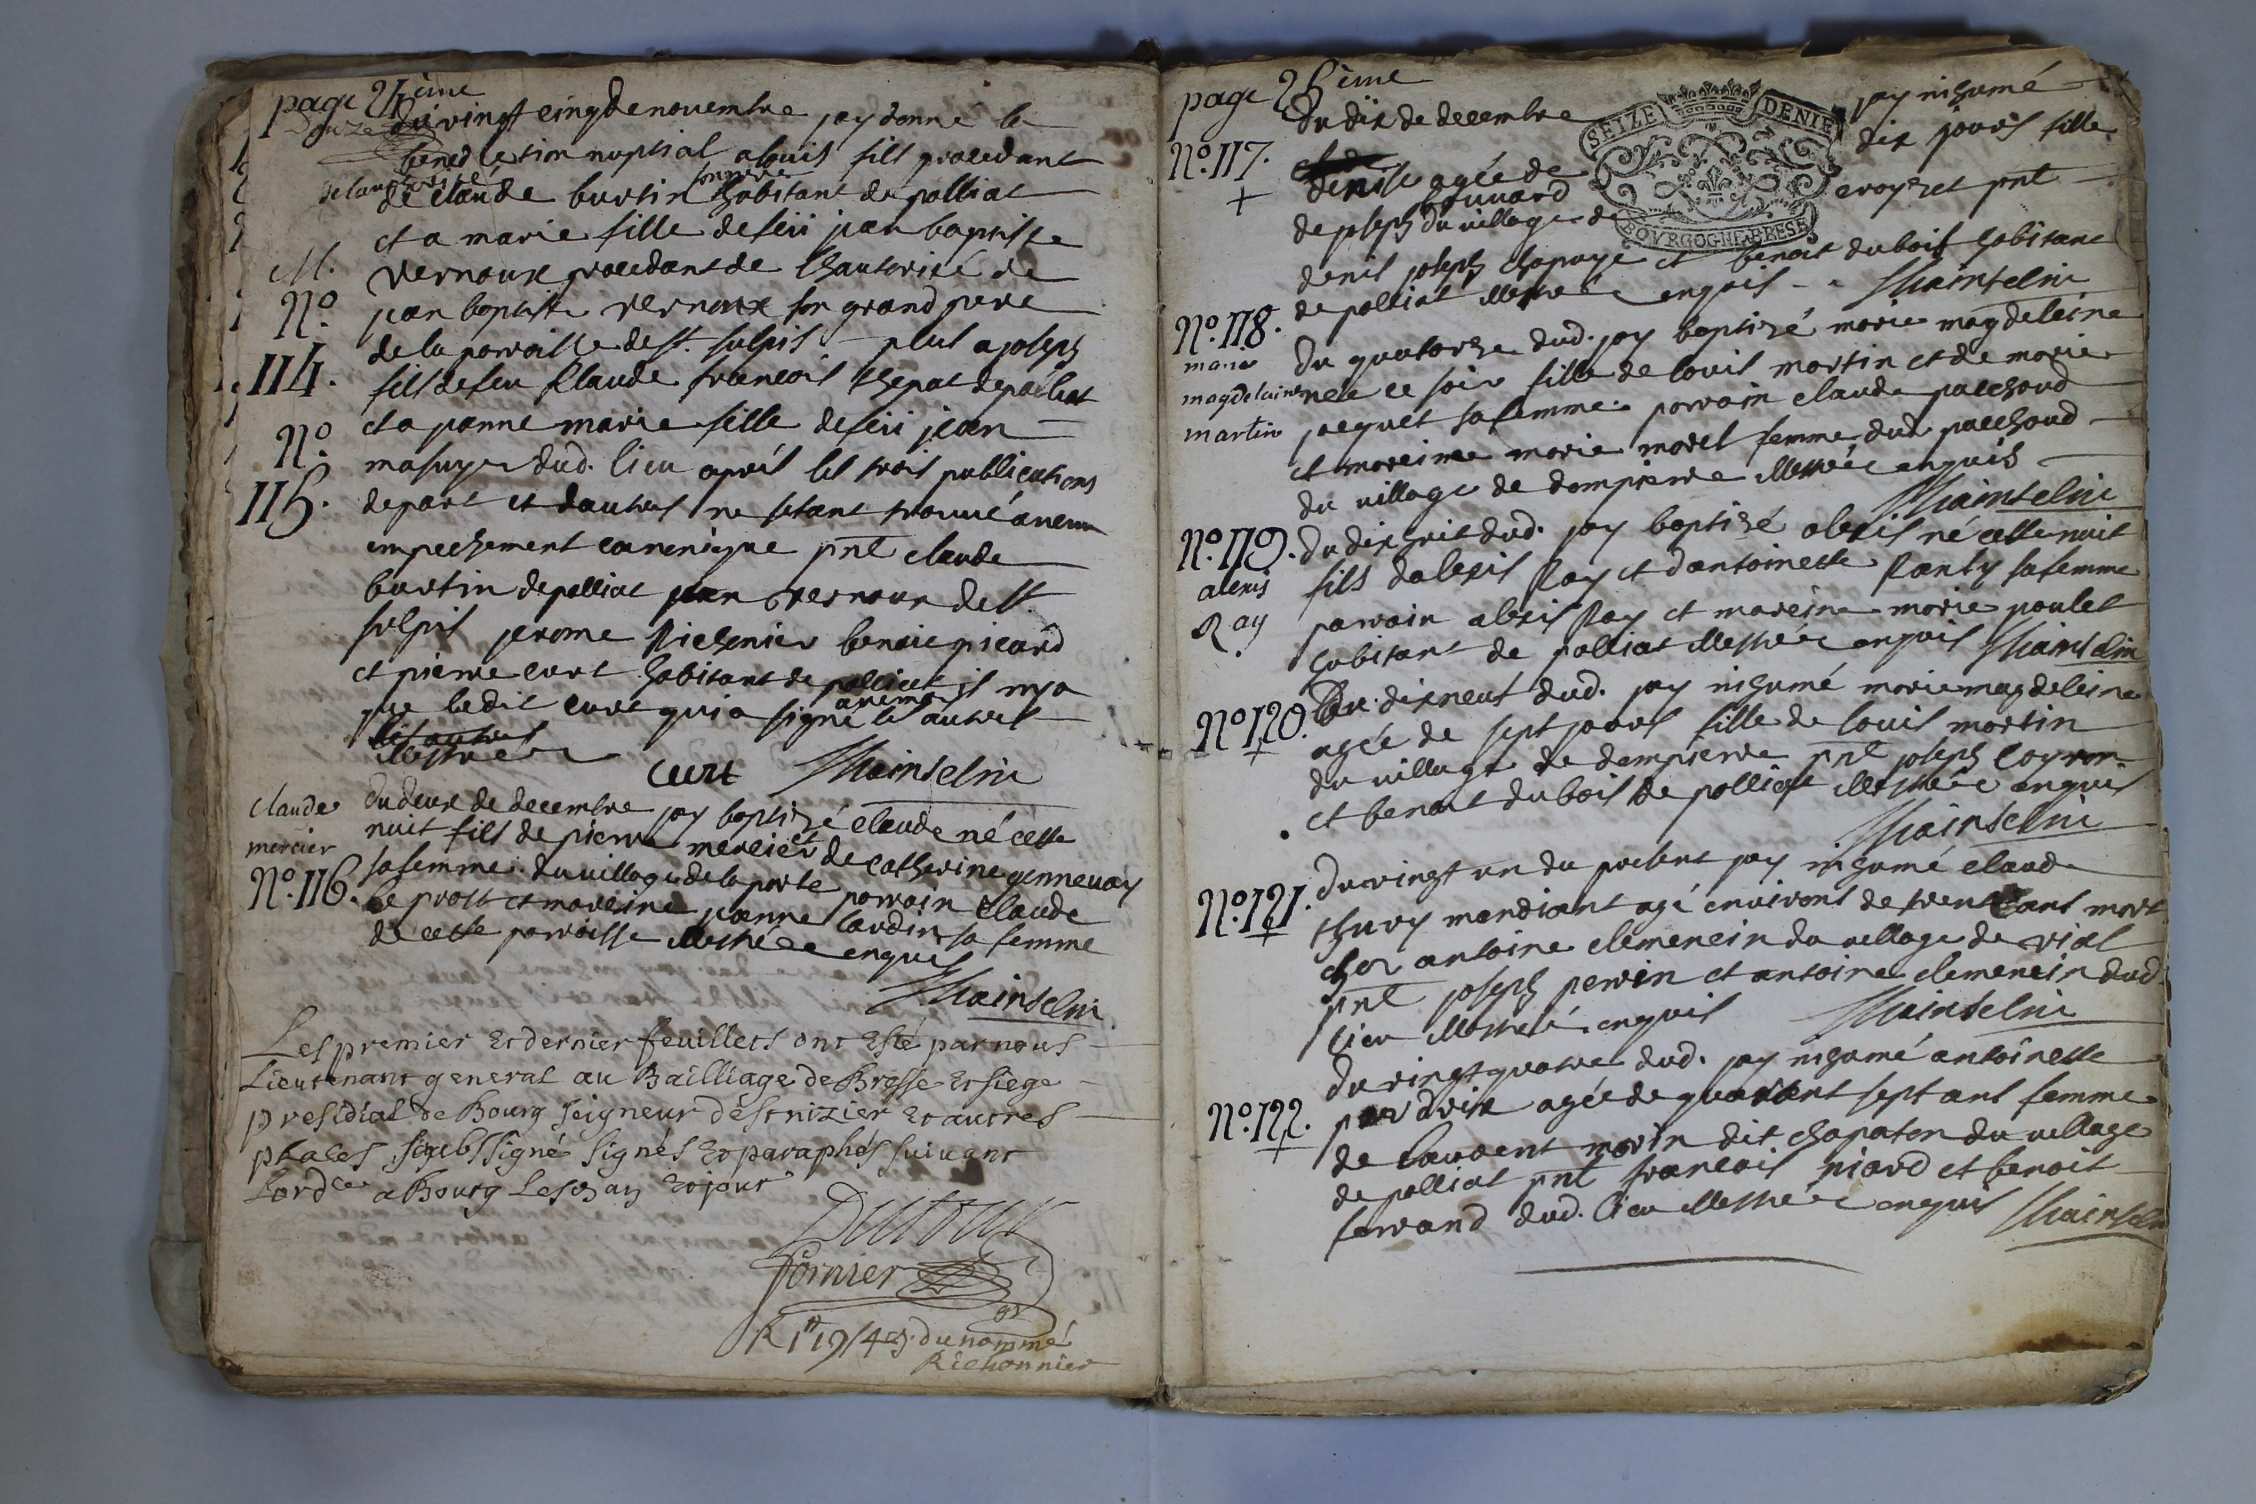 page 24ème
Du vingt cinq de novembre jay donné la
bened iction nuptial a louis fils procedant
de lauthorité
de claude burtin son pere habitant de polliat
et a marie fille de feu jean baptiste
M.
vernoux procedant de lhautorité de
N°.
jean baptiste vernoux son grand pere
de la parroisse de st. sulpis plus a joseph
114.
fils de feu claude francois chepat de polliat
et a janne marie fille de feu jean
N°.
masuyer dud. lieu aprés les trois publications
115.
de part et dautres ne setant trouvé aucun
empechement canonique pnt claude
burtin de polliat jean vernoux de st.
sulpis jerome Richonier benoit picard
et pierre curt habitant de polliat il ny a
que ledit curt qui a signé les autres
les autres
illettrée
curt Mainselin
claude mercier
du deux de decembre jay baptisé claude né cette
nuit fils de pierre mercier et de catherine gennevay
N°. 116.
sa femme du village de la porte parrain claude
le prost et mareine jeanne cardin sa femme
de cette parroisse illettrée enquis
Mainselin
Les premier et dernier feuillets ont esté par nous
Lieutenant general au Bailliage de Bresse et siege
presidial de Bourg seigneur de st nizier et autres
places signé signés et paraphés suivant
Lord.ce a Bourg Les an et jour
Dutour
fornier
R 1tt 19s 4d du nommé
Richonnier
page 25ème
SEIZE DENIE
BOVRGOGNE BRESE
N°. 117.
du dix de decembre jay inhumé
denise agée de dix jours fille
de joseph du village de croyset pnt
denis joseph chapuye et benoit dubois habitant
de polliat illettrée enquis Mainselin
N°. 118.
marie magdelaine martin
du quatorze dud. jay baptisé marie magdeleine
née ce soir fille de louis martin et de marie
jacquet sa femme parrain claude pacchoud
et mareine marie morel femme dud. pacchoud
du village de dompierre illettrée enquis
Mainselin
N°. 119.
alexis Ray
du dix huit dud. jay baptisé alexis né cette nuit
fils dalexis Ray et dantoinette Ranty sa femme
parrain alexis Ray et mareine marie poulet
habitant de polliat illettrée enquis Mainselin
N°. 120.
Du dix neuf dud. jay inhumé marie magdeleine
agée de sept jours fille de louis martin
du village de dompierre pnt joseph loyron
et benoit dubois de polliat illettrée enquis
Mainselin
N°. 121.
du vingt un du present jay inhumé claude
thury mandiant agé environs de trente ans mort
chez antoine clemencin du village de vial
pnt joseph perrin et antoine clemencin dud.
lieu illettré enquis Mainselin
N°. 122.
du vingt quatre dud. jay inhumé antoinette
perdrix agée de quarant sept ans femme
de laurent morin dit chapaton du village
de polliat pnt francois niard et benoit
ferrand dud. lieu illettrée enquis Mainselin